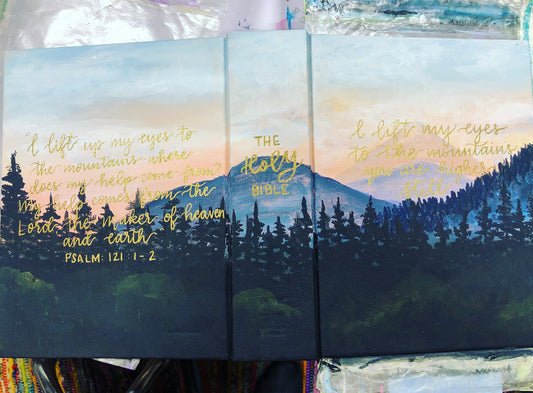 "I lift up my eyes to
the mountains where
does my help come from?
My help comes from the
Lord, the maker of heaven
and earth.
PSALM: 121 1-2
THE
Holy
BIBLE
I lift my eyes
to the mountains
you are higher
still